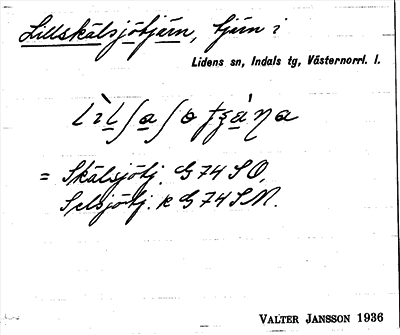 Lillskälsjötjärn, tjärn i
Lidens sn, Indals tg, Västernorrl. l.
= Skälsjötj. G 74 SO,
Selsjötj. k G 74 SN.
VALTER JANSSON 1936